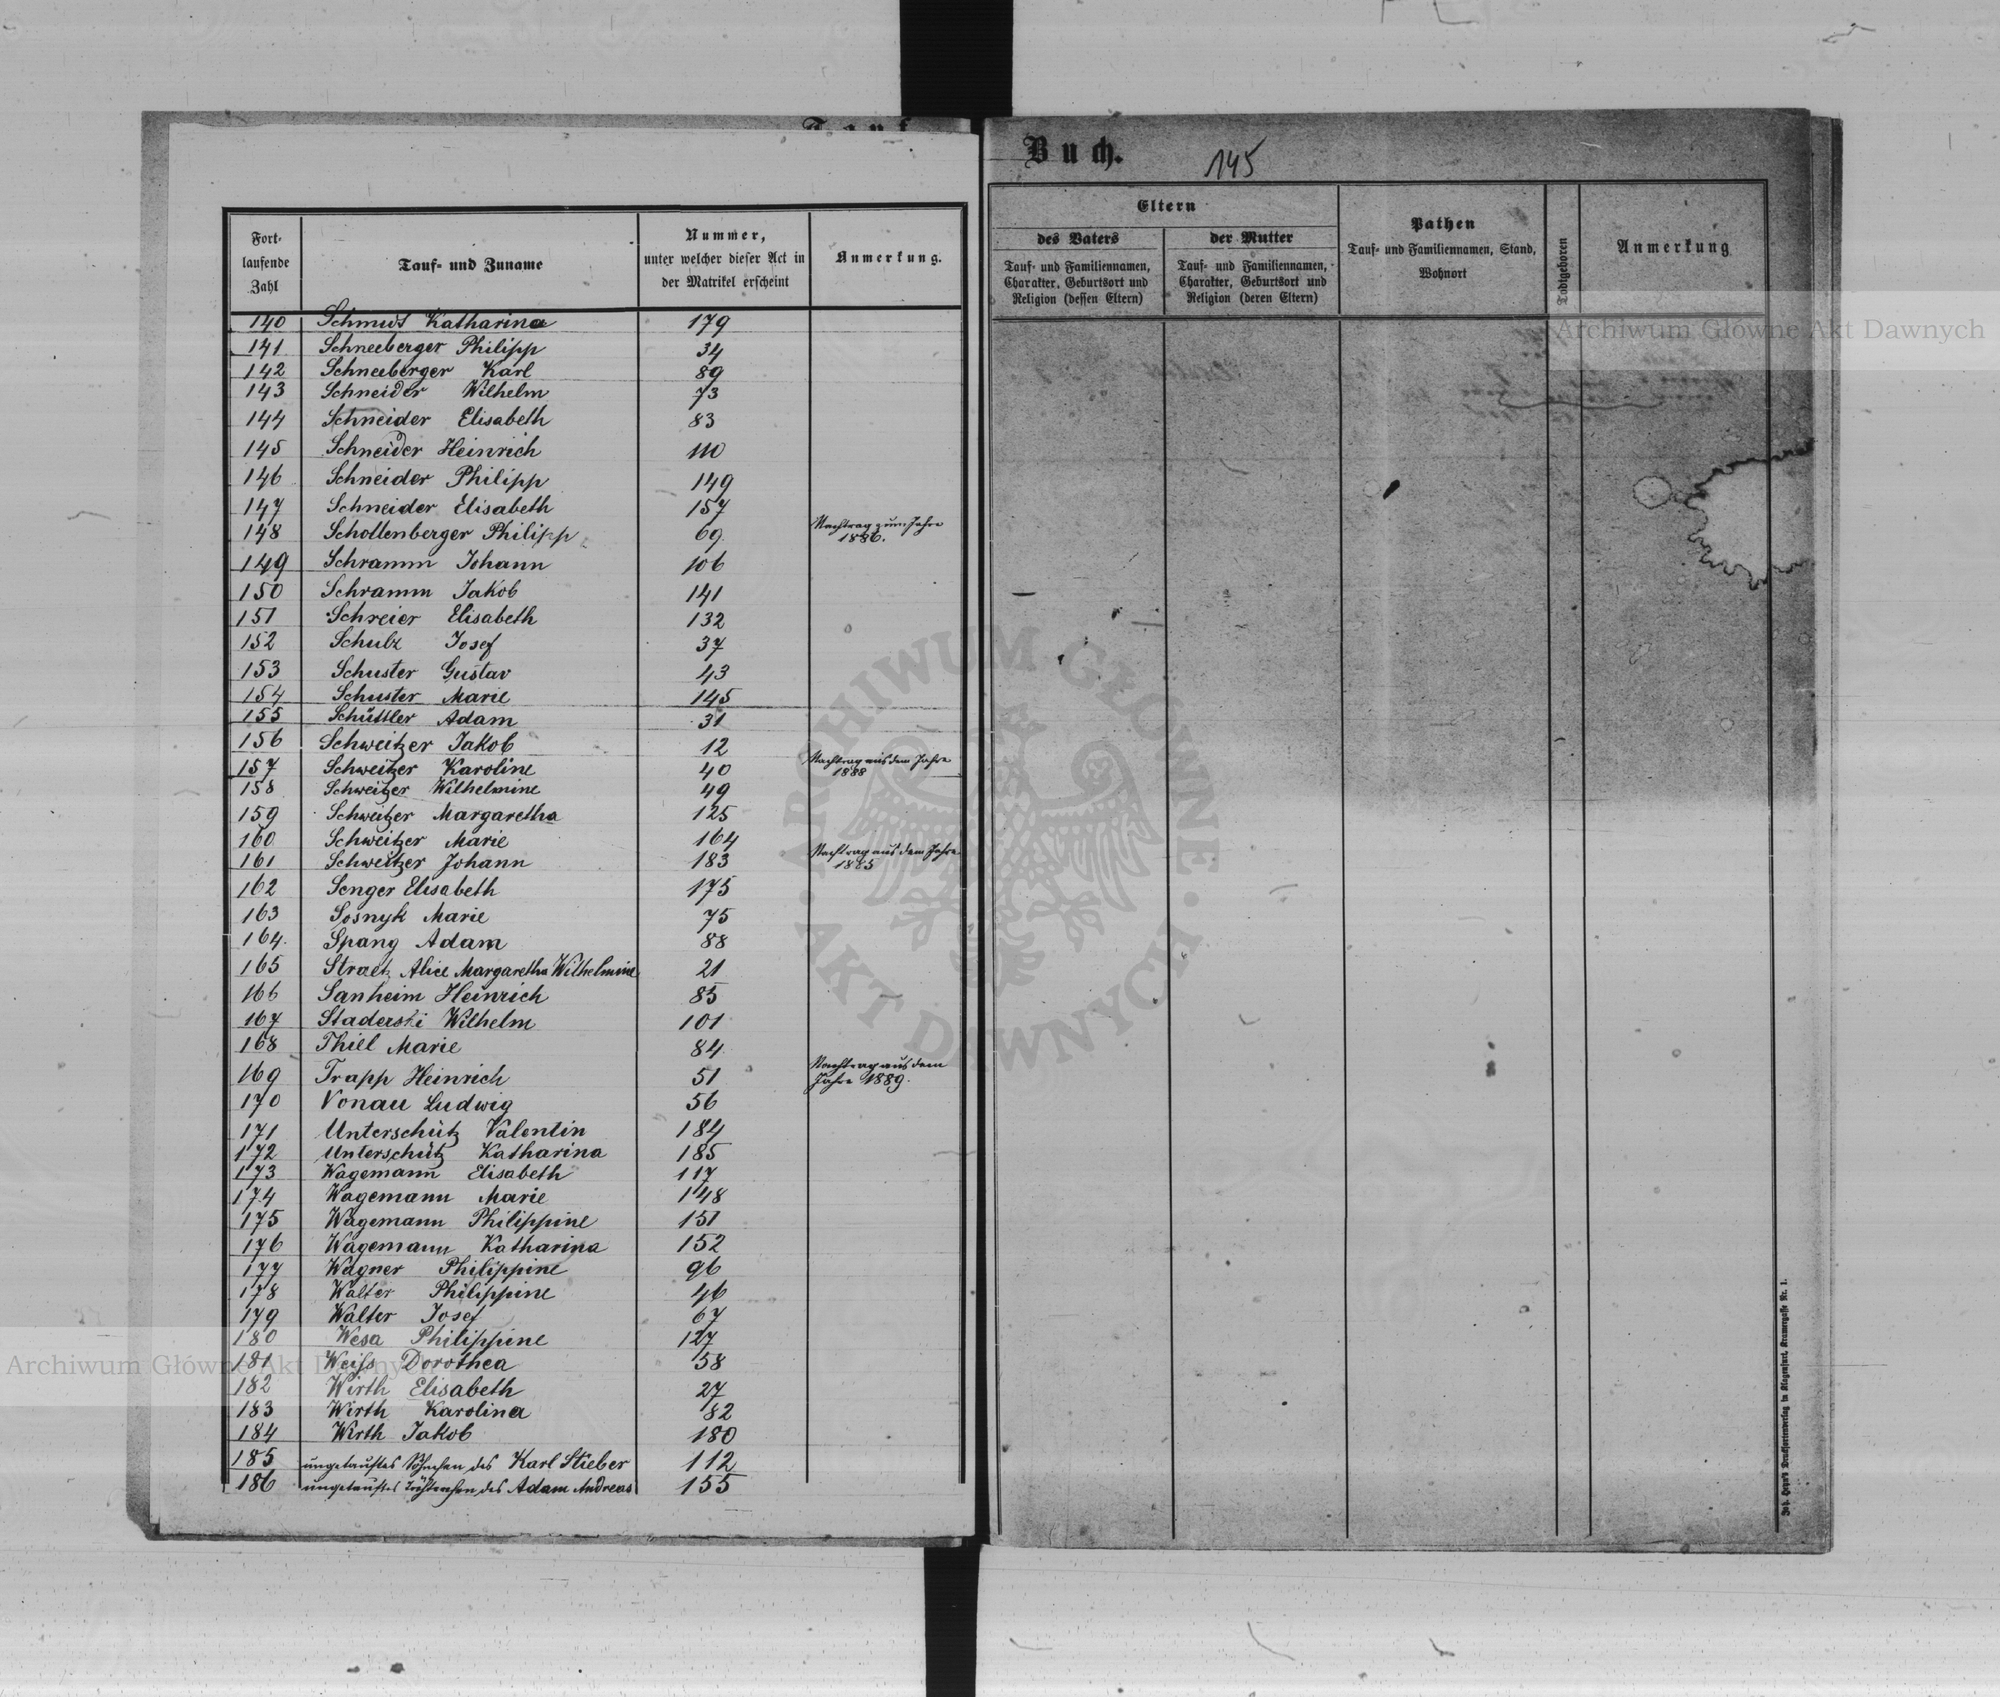 Tauf
Fort-
laufende
Zahl
Tauf- und Zuname
Nummer,
unter welcher dieser Act in
der Matrikel erscheint
Anmerkung.
140 Schmidt Katharina 179
141 Schneeberger Philipp 34
142 Schneeberger Karl 89
143 Schneider Wilhelm 73
144 Schneider Elisabeth 83
145 Schneider Heinrich 110
146 Schneider Philipp 149
147 Schneider Elisabeth 157
148 Schollenberger Philipp 69 Nachtrag zum Jahre
1886.
149 Schramm Johann 106
150 Schramm Jakob 141
151 Schreier Elisabeth 132
152 Schulz Josef 37
153 Schuster Gustav 43
154 Schuster Marie 145
155 Schüttler Adam 31
156 Schweitzer Jakob 12
157 Schweitzer Karoline 40 Nachtrag aus dem Jahre
1888
158 Schweitzer Wilhelmine 49
159 Schweitzer Margaretha 125
160 Schweitzer Marie 164
161 Schweitzer Johann 183 Nachtrag aus dem Jahre
1885
162 Senger Elisabeth 175
163 Sosnyk Marie 75
164. Spang Adam 88
165 Alice Margaretha Wilhelmine 21
166 Sanheim Heinrich 85
167 Staderski Wilhelm 101
168 Thiel Marie 84
169 Trapp Heinrich 51 Nachtrag aus dem
Jahre 1889.
170 Vonau Ludwig 56
171 Unterschütz Valentin 184
172 Unterschütz Katharina 185
173 Wagemann Elisabeth 117
174 Wagemann Marie 148
175 Wagemann Philippine 151
176 Wagemann Katharina 152
177 Wagner Philippine 96
178 Walter Philippine 46
179 Walter Josef 67
180 Wesa Philippine 127
181 Weiss Dorothea 58
182 Wirth Elisabeth 27
183 Wirth Karolina 82
184 Wirth Jakob 180
185 ungetauftes Söhnchen des Karl Stieber 112
186 ungetauftes Töchterchen des Adam Andreas 155
Buch. 145
Eltern
des Vaters
Tauf- und Familiennamen,
Charakter, Geburtsort und
Religion (dessen Eltern)
der Mutter
Tauf- und Familiennamen,
Charakter, Geburtsort und
Religion (deren Eltern)
Pathen
Tauf- und Familiennamen, Stand,
Wohnort
Todtgeboren
Anmerkung
Joh. Heyn's Drucksortenverlag in Klagenfurt, Kramergasse Nr. 1.
Archiwum Główne Akt Dawnych
Archiwum Główne Akt Dawnych
ARCHIWUM GŁÓWNE • AKT DAWNYCH •